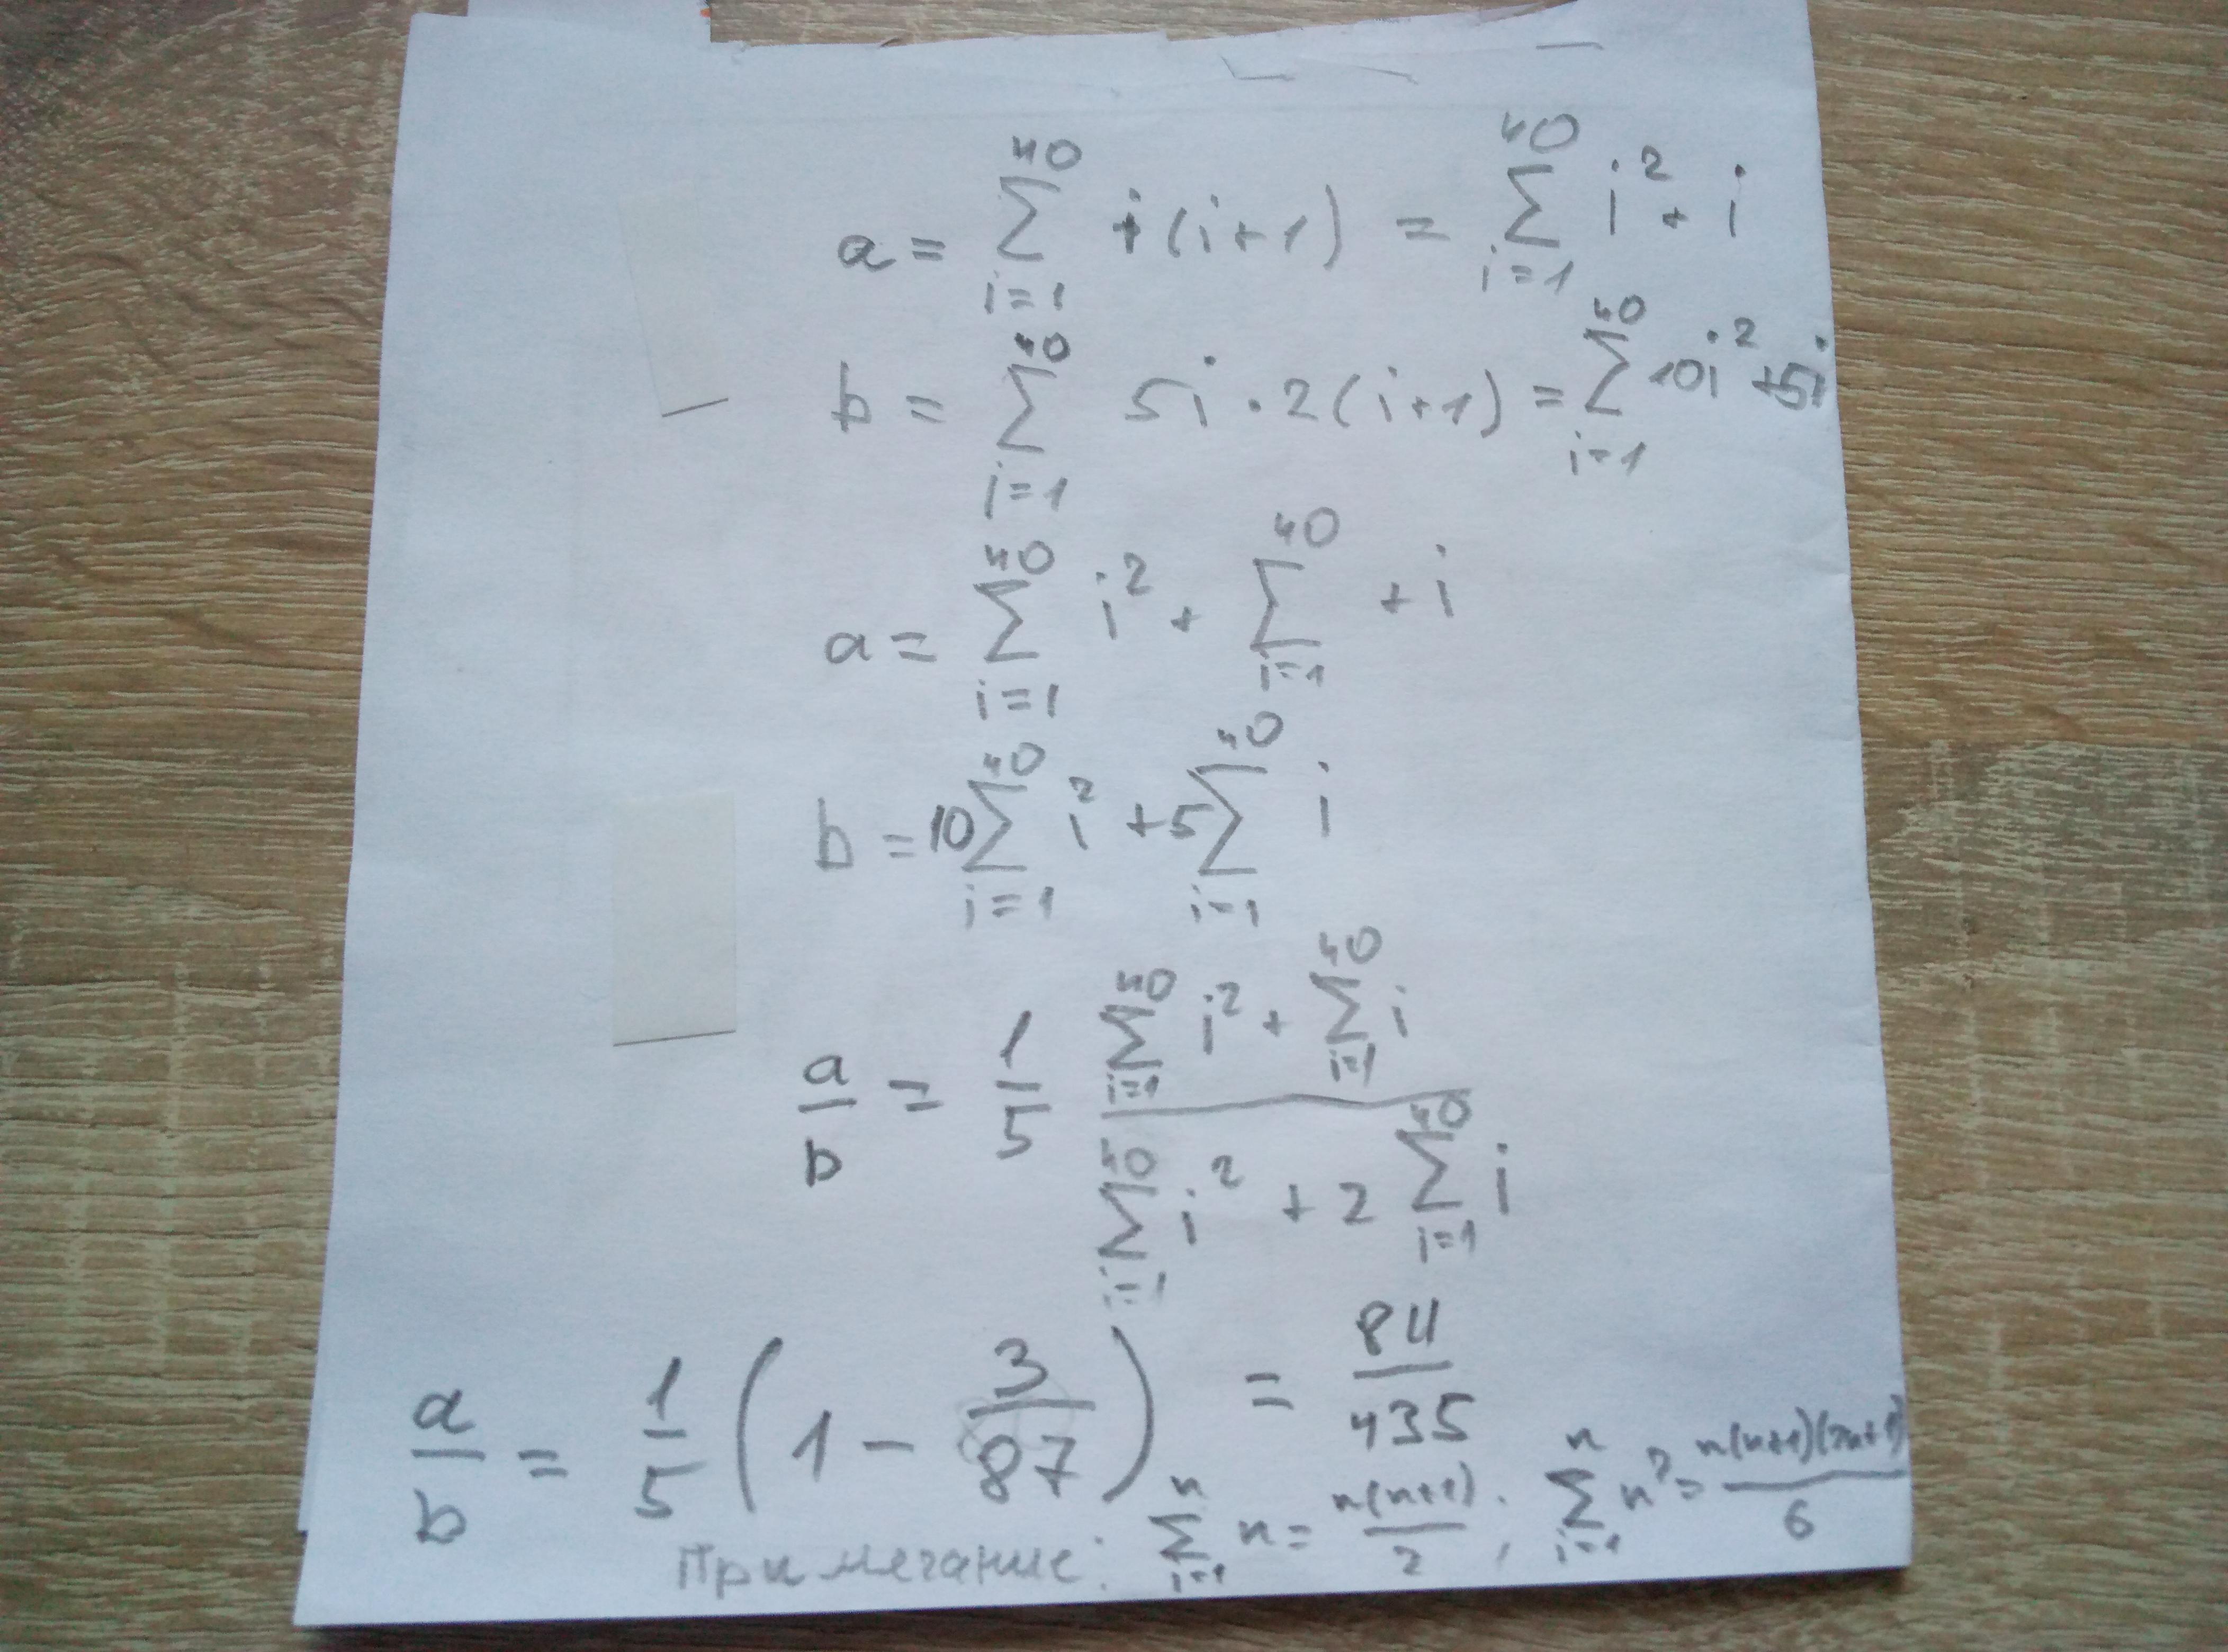 a = \sum_{i=1}^{40} i(i+1) = \sum_{i=1}^{40} i^2 + i
b = \sum_{i=1}^{40} 5i \cdot 2(i+1) = \sum_{i=1}^{40} 10i^2 + 5i
a = \sum_{i=1}^{40} i^2 + \sum_{i=1}^{40} + i
b = 10 \sum_{i=1}^{40} i^2 + 5 \sum_{i=1}^{40} i
\frac{a}{b} = \frac{1}{5} \frac{\sum_{i=1}^{40} i^2 + \sum_{i=1}^{40} i}{\sum_{i=1}^{40} i^2 + 2 \sum_{i=1}^{40} i}
\frac{a}{b} = \frac{1}{5} \left( 1 - \frac{3}{87} \right) = \frac{84}{435}
Примечание: \sum_{i=1}^{n} n = \frac{n(n+1)}{2}; \sum_{i=1}^{n} n^2 = \frac{n(n+1)(2n+1)}{6}